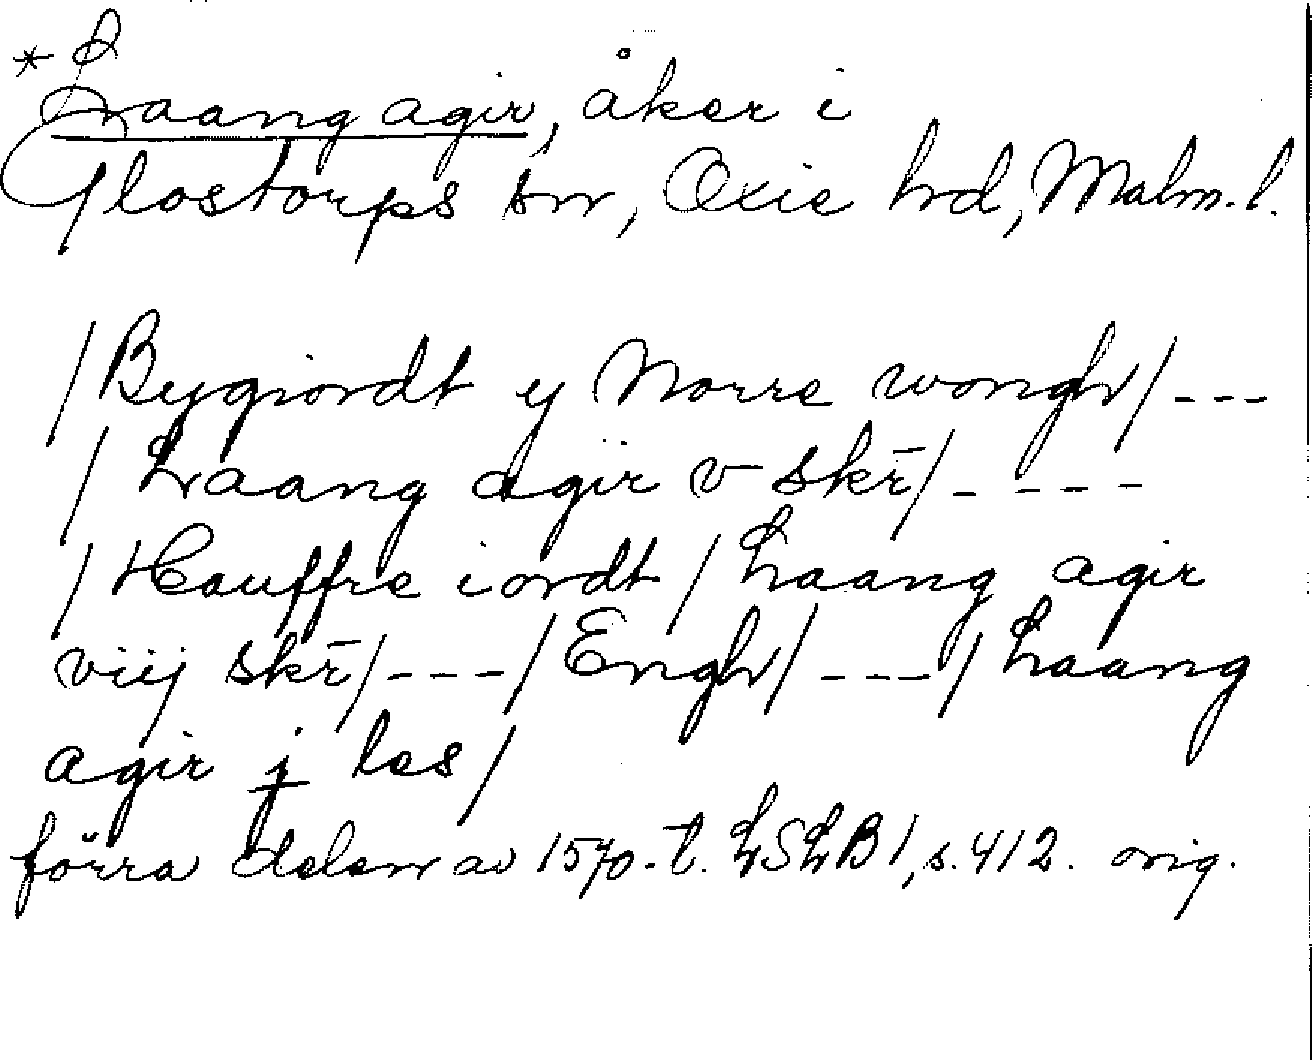 * Laang agir, åker i
Glostorps sn, Oxie hd, Malm. l.
/Bygiordt y Norre wongh/---
/Laang agir v skr̄/- - - -
/Hauffre iordt/Laang agir
viij skr̄/---/Engh/---/Laang
agir j les/
förra delen av 1570-t. LSLB1, s. 412. orig.